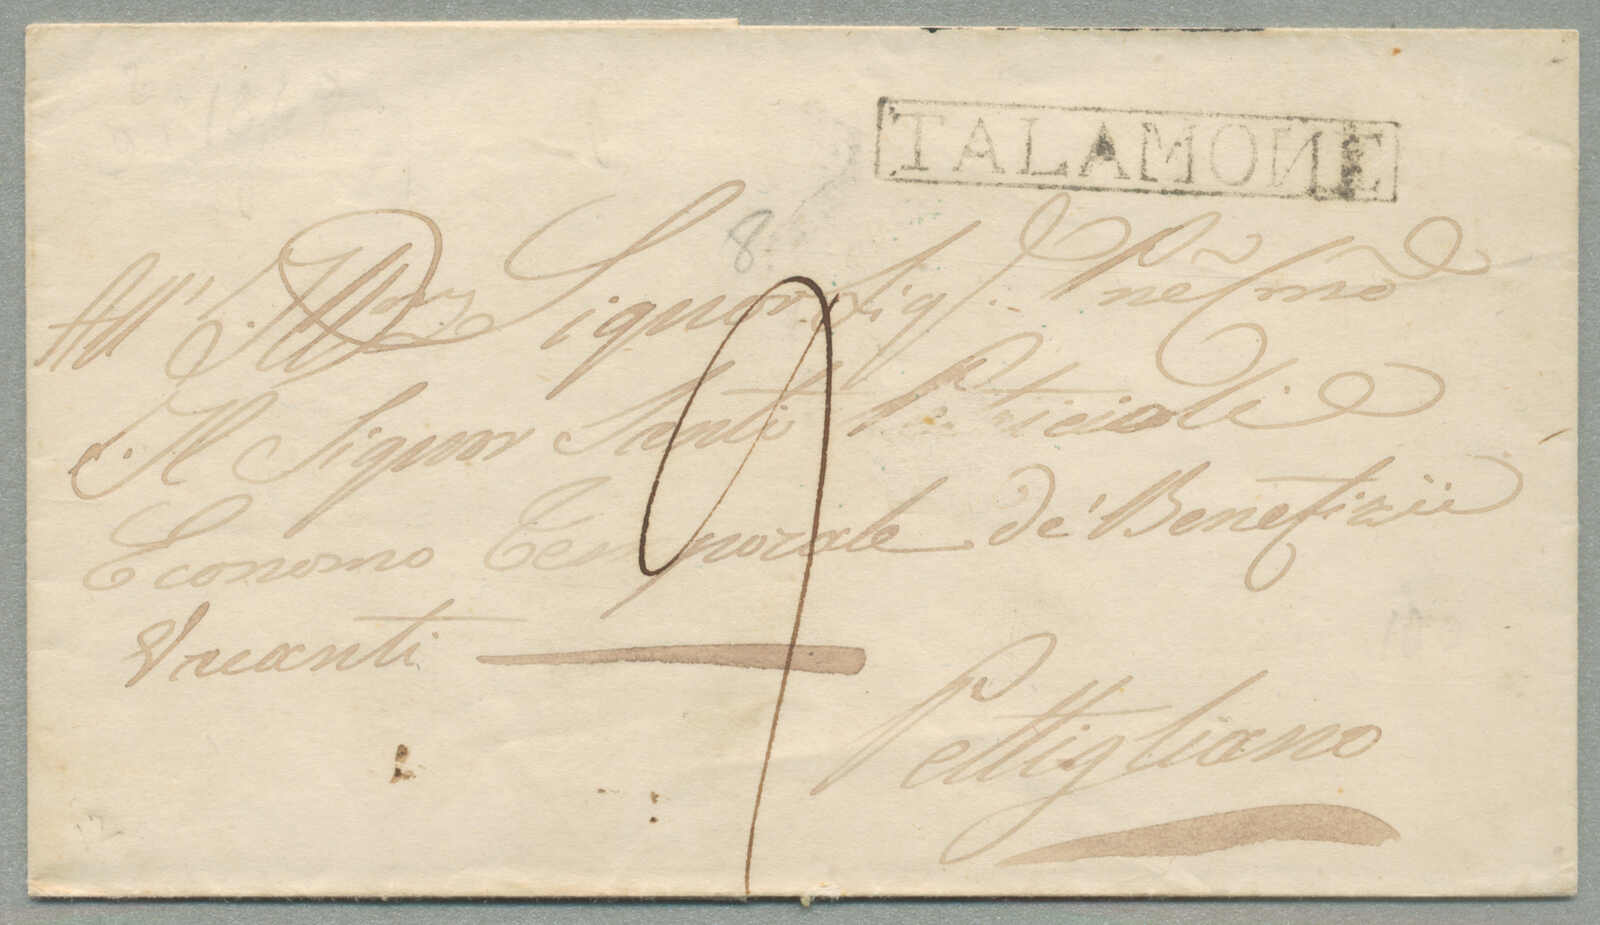 TALAMONE
8.
All' Ill.mo Signor Sig. Pne Cmo
Il Signor Santi Petricioli
Economo Temporale de' Benefizii
Vacanti
Pettigliano